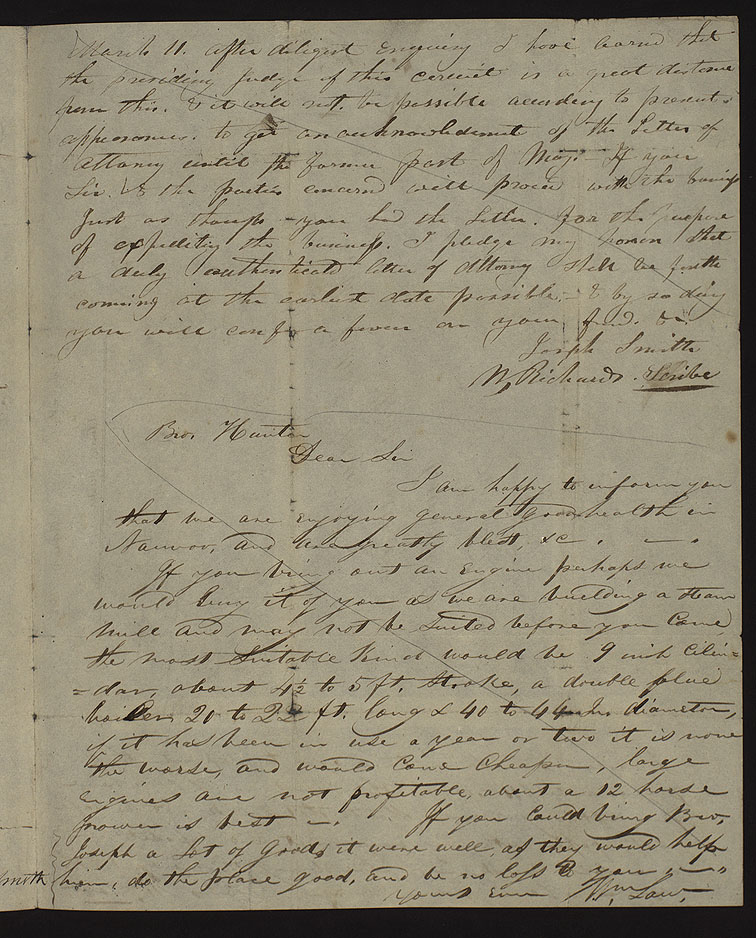 March 11. after diligent enquiry I have learned that
the presiding Judge of this circuit is a great distance
from this. & it will not. be possible according to present
appearances. to get an acknowledgement of the Letter of
Attorny until the former part of May. — If you
Sir. & the parties concerned will proceed with the business
Just as though — you had the Letter. for the purpose
of expediting the business. I pledge my honor that
a duly authenticated letter of Attorny shall be forth
coming at the earliest date possible, — & by so doing
you will confer a favor on your frend. &c.
Joseph Smith
W. Richards. Scribe
Bro. Hunter
Dear Sir
I am happy to inform you
that we are enjoying general good health in
Nauvoo, and are greatly blest, &c. — .
If you bring out an Engine perhaps we
would buy it of you as we are building a steam
mill and may not be suited before you come,
the most suitable kind would be 9 inch cilin=
=dar, about 4½ to 5 ft. stroke, a double flue
boiler 20 to 22 ft. long & 40 to 44 In. diameter,
if it has been in use a year or two it is none
the worse, and would come cheaper, large
engines are not profitable, about a 12 horse
power is best —. If you could bring Bro.
Joseph a lot of goods it were well, as they would help
Smith him, do the place good, and be no loss to you —
yours ever Wm Law.